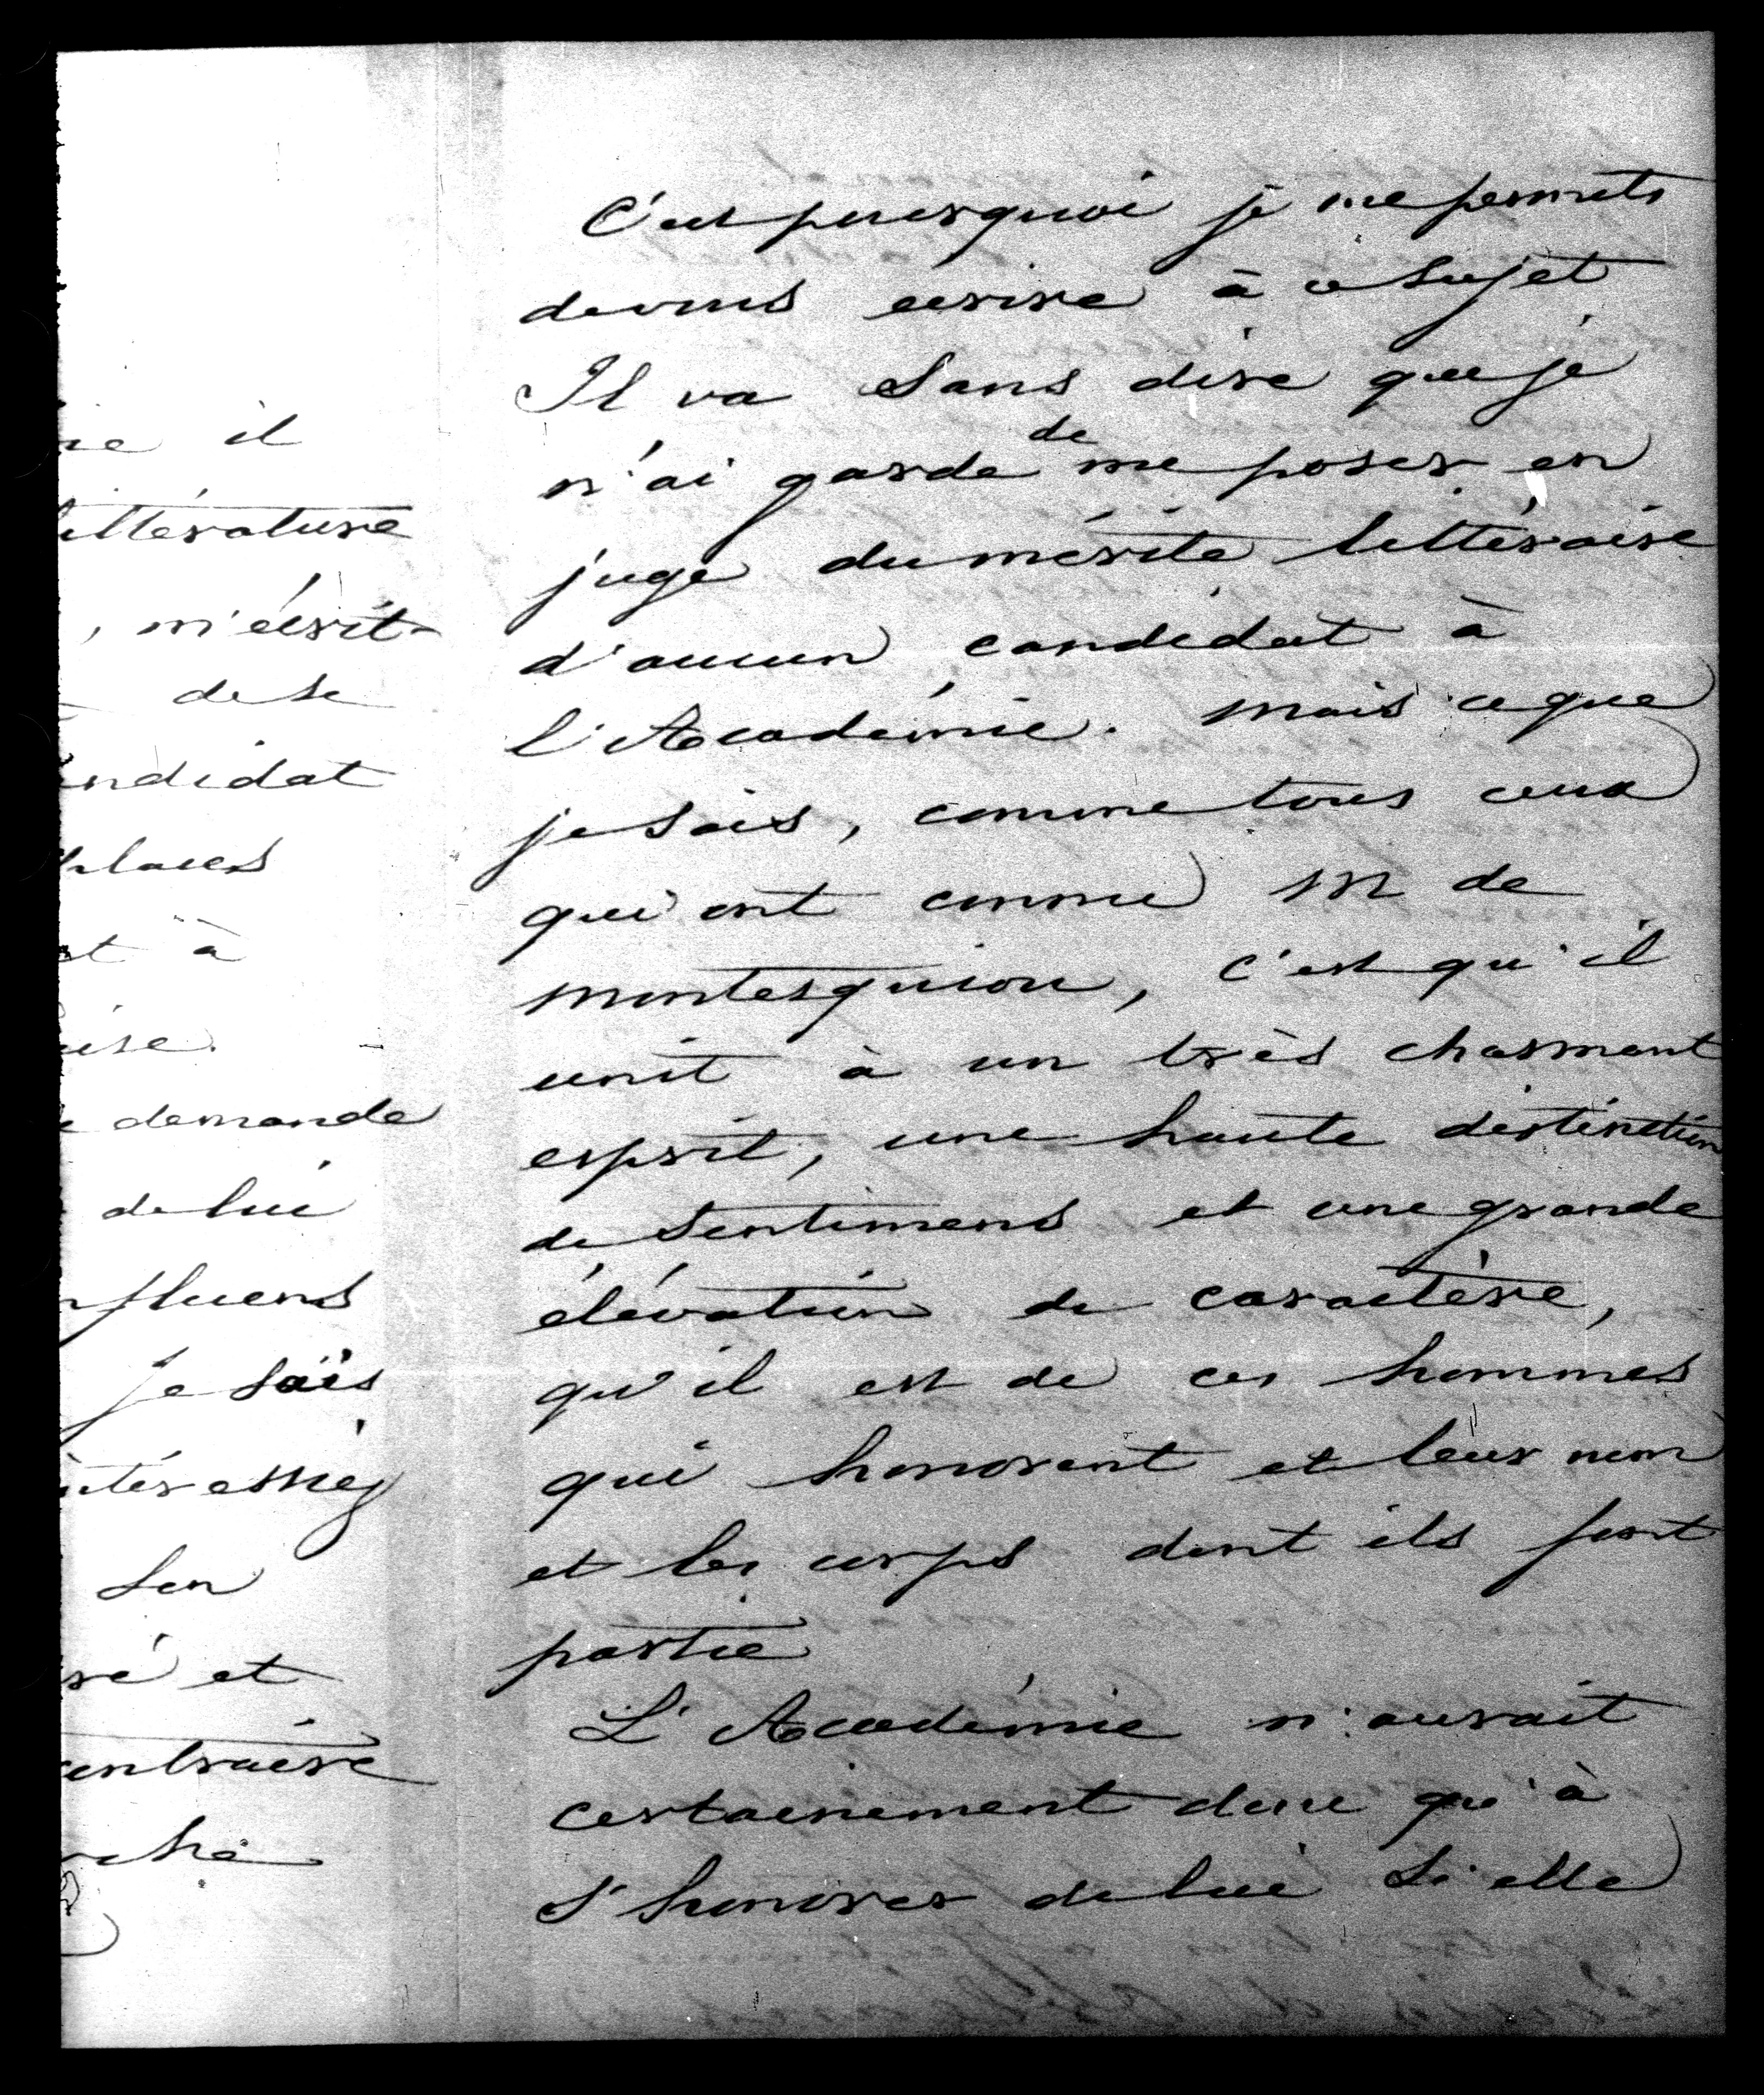 ie il
ittérature
, m'écrit
de se
andidat
places
st à
aise.
e demande
de lui
nfluens
Je sais
ntéressiez
son
ré et
contraire
che
C'est pourquoi je me permets
de vous écrire à ce sujet
Il va sans dire que je
n'ai garde de me poser en
juge du mérite littéraire
d'aucun candidat à
l'Académie. Mais ce que
je sais, comme tous ceux
qui ont connu M de
Montesquiou, c'est qu'il
unit à un très charmant
esprit, une haute distinction
de sentimens et une grande
élévation de caractère,
qu'il est de ces hommes
qui honorent et leur nom
et les corps dont ils font
partie
L'Académie n'aurait
certainement donc qu'à
s'honorer de lui si elle